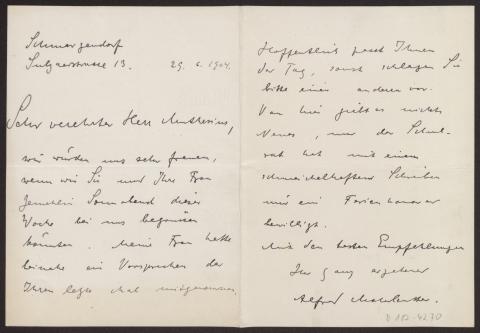 Schmargendorf
Sulzaerstrasse 13. 29. 6. 1904.
Sehr verehrter Herr Muthesius,
wir würden uns sehr freuen,
wenn wir Sie und Ihre Frau
Gemahlin Sonnabend dieser
Woche bei uns begrüssen
könnten. Meine Frau hatte
beinahe ein Versprechen der
Ihren letztes Mal mitgenommen.
Hoffentlich passt Ihnen
der Tag, sonst schlagen Sie
bitte einen anderen vor.
Von hier giebt es nichts
Neues, nur der Schul-
rat hat mit einem
schmeichelhaften Schreiben
mir ein Ferienhonorar
bewilligt.
Mit den besten Empfehlungen
Ihr ganz ergebener
Alfred
D 102-4270